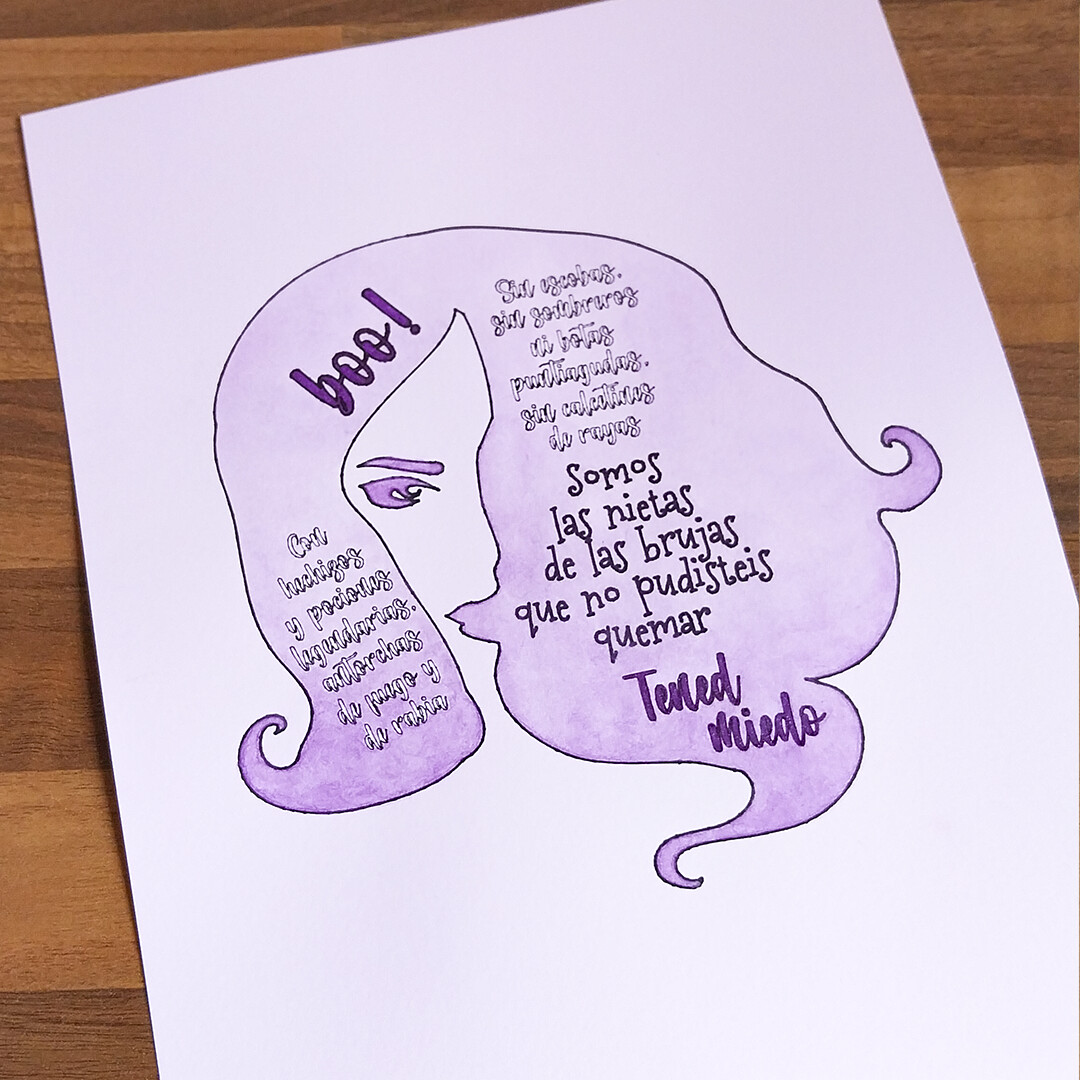 boo!
Sin escobas,
sin sombreros
ni botas
puntiagudas,
sin calcetines
de rayas
somos
las nietas
de las brujas
que no pudisteis
quemar
Tened
miedo
Con
hechizos
y pociones
legendarias,
antorchas
de fuego y
de rabia